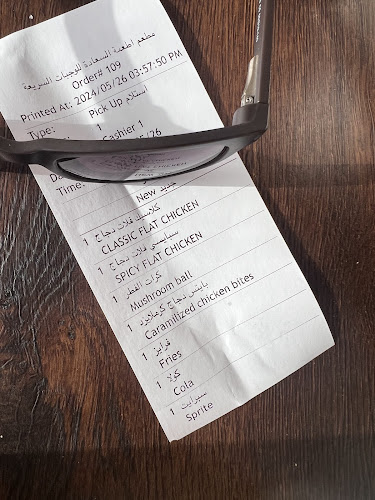 مطعم اطعمة السعادة للوجبات السريعة
Order# 109
Printed At: 2024/05/26 03:57:50 PM
Type: Pick Up استلام
Cashier 1
Time:
New جديد
1 كلاسك فلات دجاج
CLASSIC FLAT CHICKEN
1 سبايسي فلات دجاج
SPICY FLAT CHICKEN
1 كرات الفطر
Mushroom ball
1 بايتس دجاج كرملايزد
Caramilized chicken bites
1 فرايز
Fries
1 كولا
Cola
1 سبرايت
Sprite